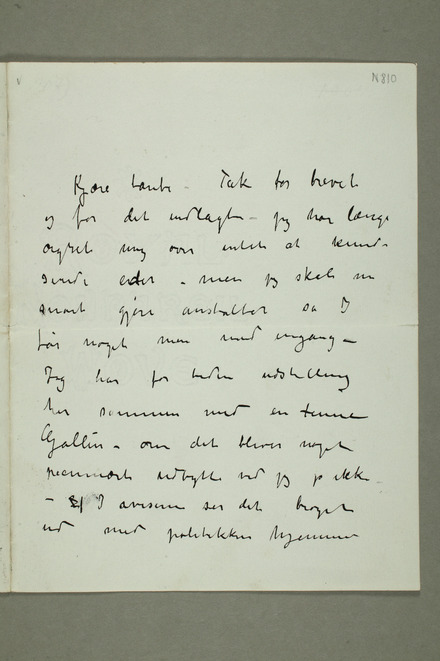 N 810
Kjære tante – Tak for brevet
og for det indlagte – jeg har længe
ærgret mig over intet at kunde
sende eder – men jeg skal nu
snart gjøre anstalter så I
får noget men med engang –
Jeg har for tiden udstilling
her sammen med en finne
Gallén – om det bliver noget
pecuniært udbytte ved jeg jo ikke –
– I aviserne ser det broget
ud med politikken hjemme